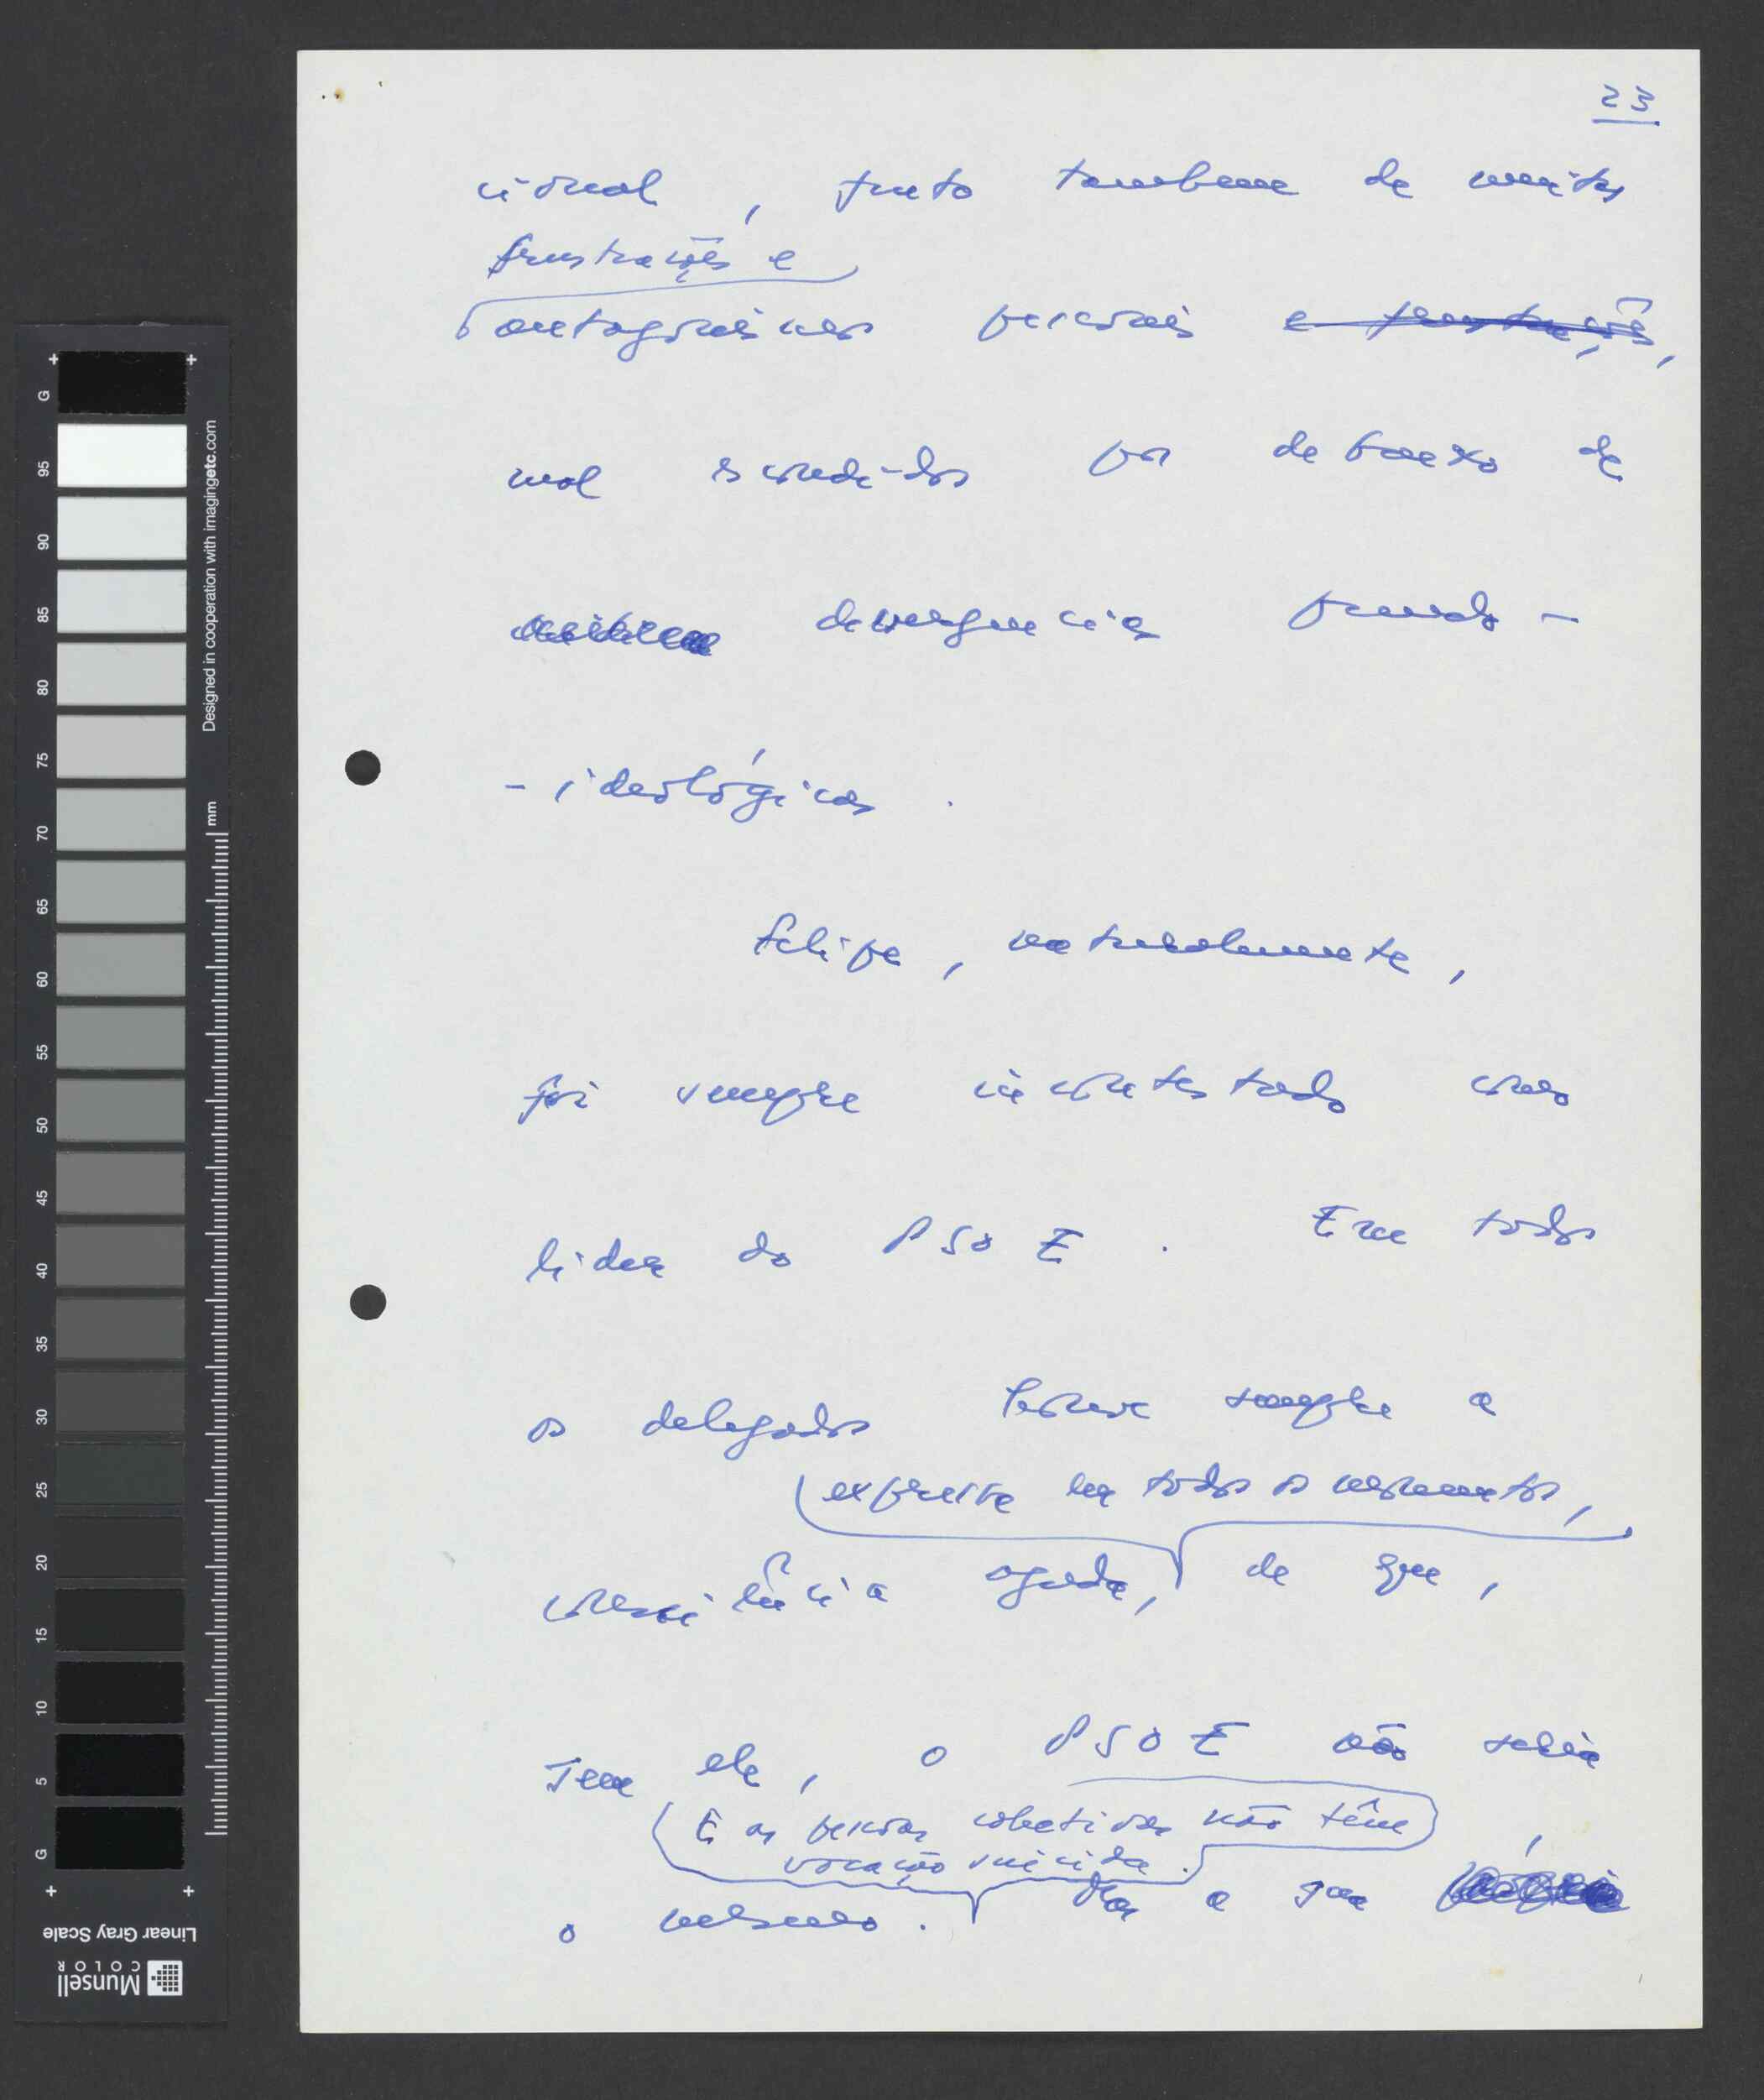 23
cional, fruto também de muitos
frustrações e
antagonismos pessoais e frustrações,
mal escondidos por debaixo de
divergências pseudo-
-ideológicas.
Felipe, naturalmente,
foi sempre incontestado como
lider do PSOE. Em todos
os delegados houve sempre a
expressa em todos os momentos,
consciência aguda, de que,
sem ele, o PSOE não seria
E as pessoas coletivas não têm
vocação suicida.
o mesmo. Mas a sua
G 95 90 85 80 75 70 65 60 55 50 45 40 35 30 25 20 15 10 5 G
Designed in cooperation with imagingetc.com
mm
Linear Gray Scale
Munsell
COLOR